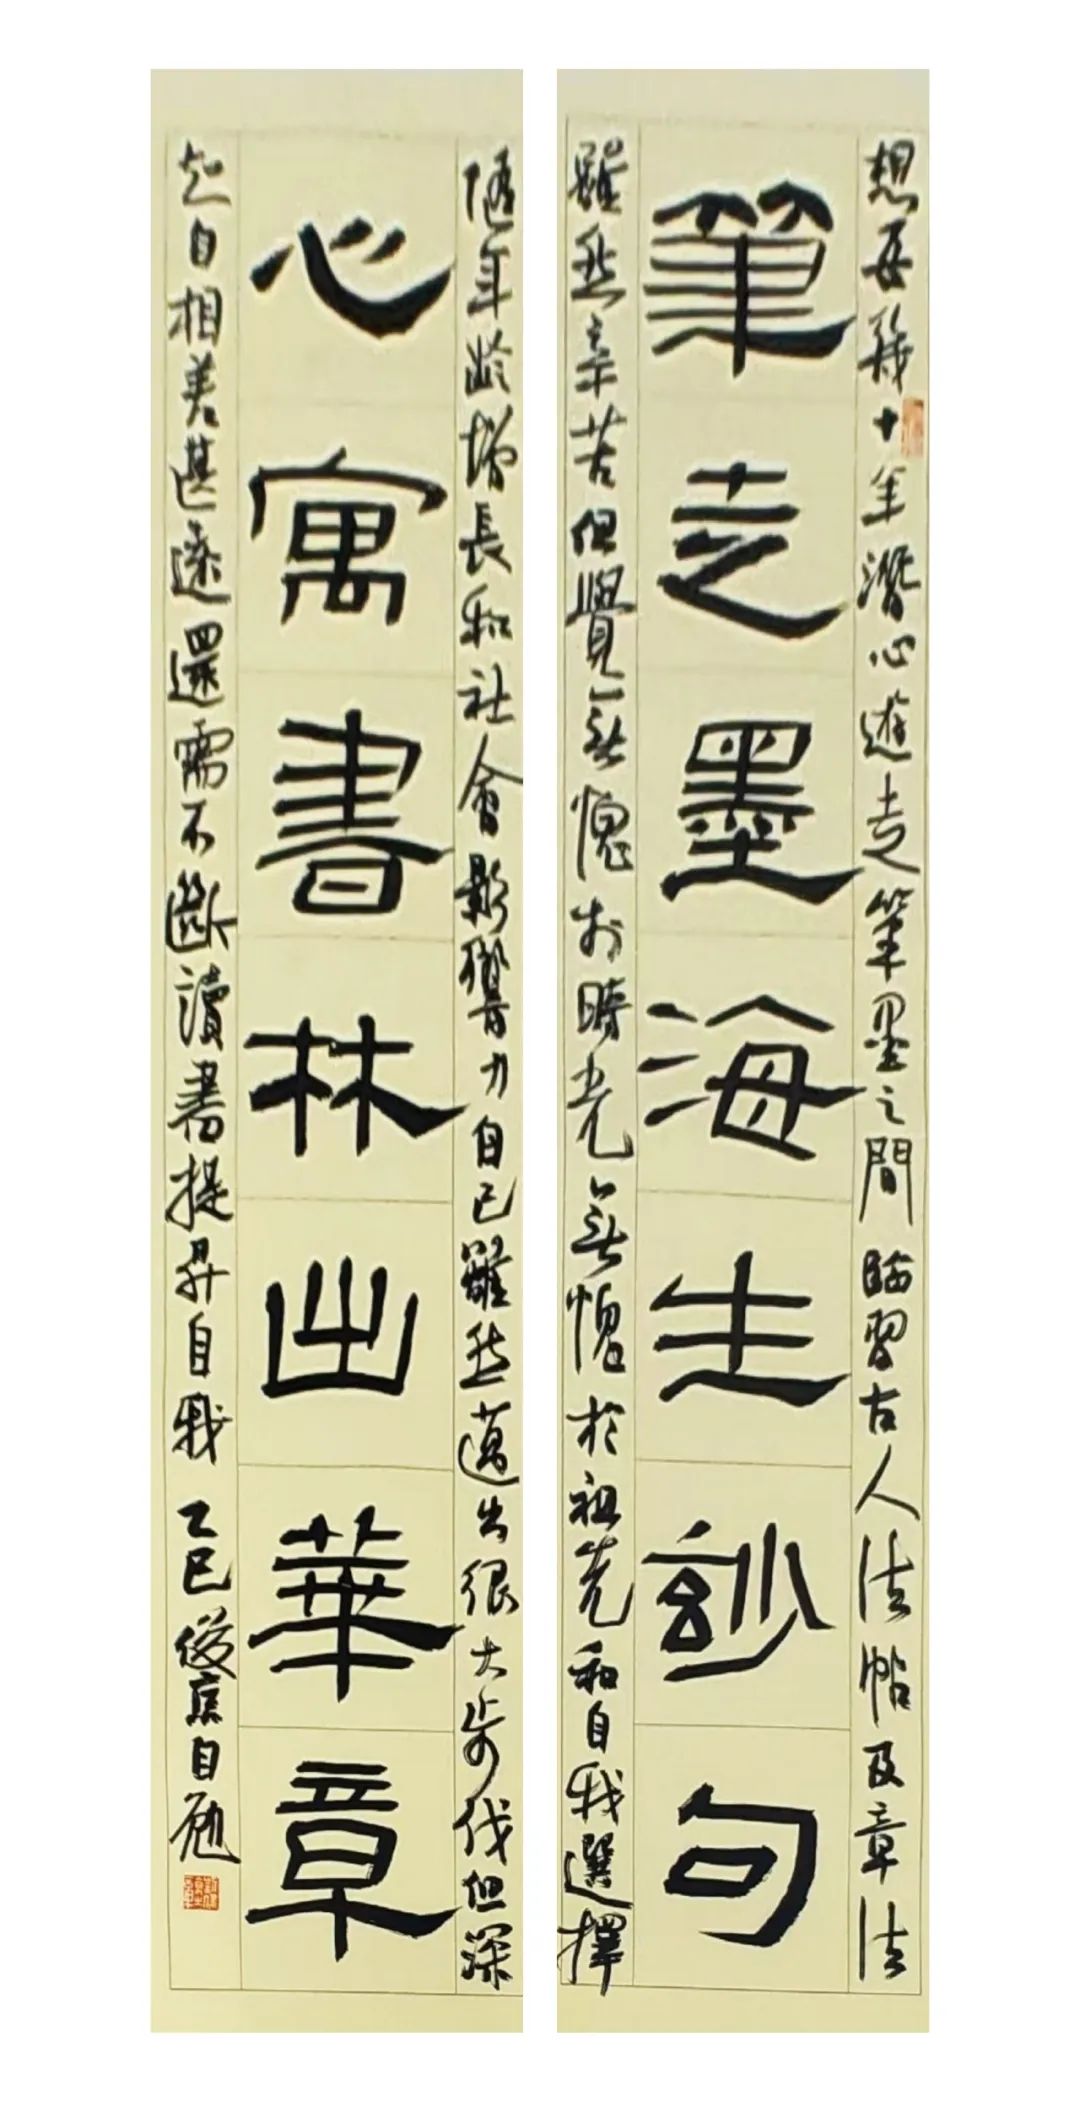 想吾幾十年潛心遊走筆墨之間臨習古人法帖及章法
筆走墨海生玅句
雖然辛苦但覺無愧於時光無愧於祖先和自我選擇
隨年齡增長和社會影響力自己雖然邁出很大步伐但深
心寓書林出華章
知自相差甚遠還需不斷讀書提昇自我 乙巳 自勉